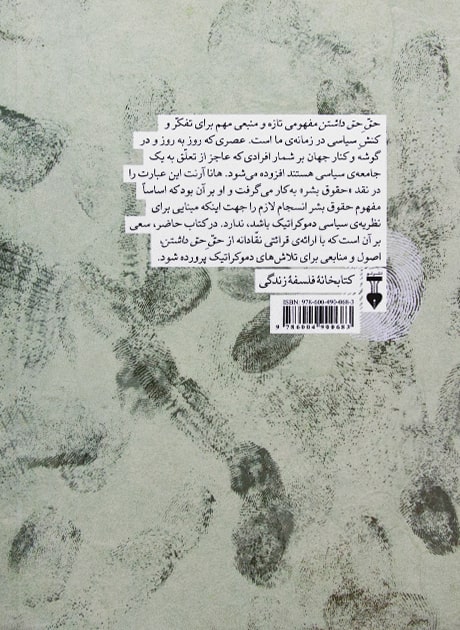 حقّ حق داشتن مفهومی تازه و منبعی مهم برای تفکّر و
کنش سیاسی در زمانه‌ی ما است. عصری که روز به روز و در
گوشه و کنار جهان بر شمار افرادی که عاجز از تعلّق به یک
جامعه‌ی سیاسی هستند افزوده می‌شود. هانا آرنت این عبارت را
در نقد «حقوق بشر» به‌کار می‌گرفت و او بر آن بود که اساساً
مفهوم حقوق بشر انسجام لازم را جهت اینکه مبنایی برای
نظریه‌ی سیاسی دموکراتیک باشد، ندارد. در کتاب حاضر، سعی
بر آن است که با ارائه‌ی قرائتی نقّادانه از حقّ حق داشتن،
اصول و منابعی برای تلاش‌های دموکراتیک پرورده شود.
کتابخانهٔ فلسفهٔ زندگی
ISBN: 978-600-490-068-3
9 786004 900683